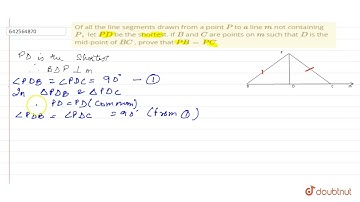 642564870
Of all the line segments drawn from a point P to a line m not containing
P, let PD be the shortest. If B and C are points on m such that D is the
mid-point of BC, prove that PB = PC.
PD is the shortest
∴ PD ⊥ m
∠PDB = ∠PDC = 90° — ①
In △PDB & △PDC
PD = PD (Common)
∠PDB = ∠PDC = 90° (from ①)
P
B D C m
doubtnut